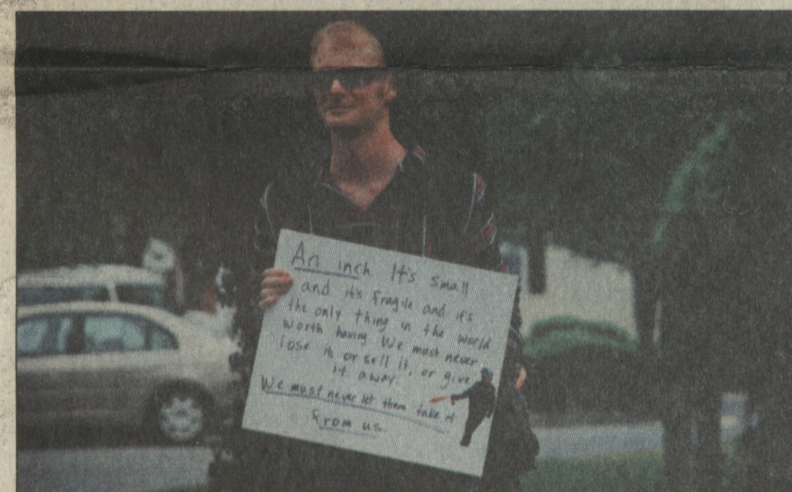 An inch It's small
and it's fragile and it's
the only thing in the world
worth having. We must never
lose it, or sell it, or give
it away.
We must never let them take it
from us.